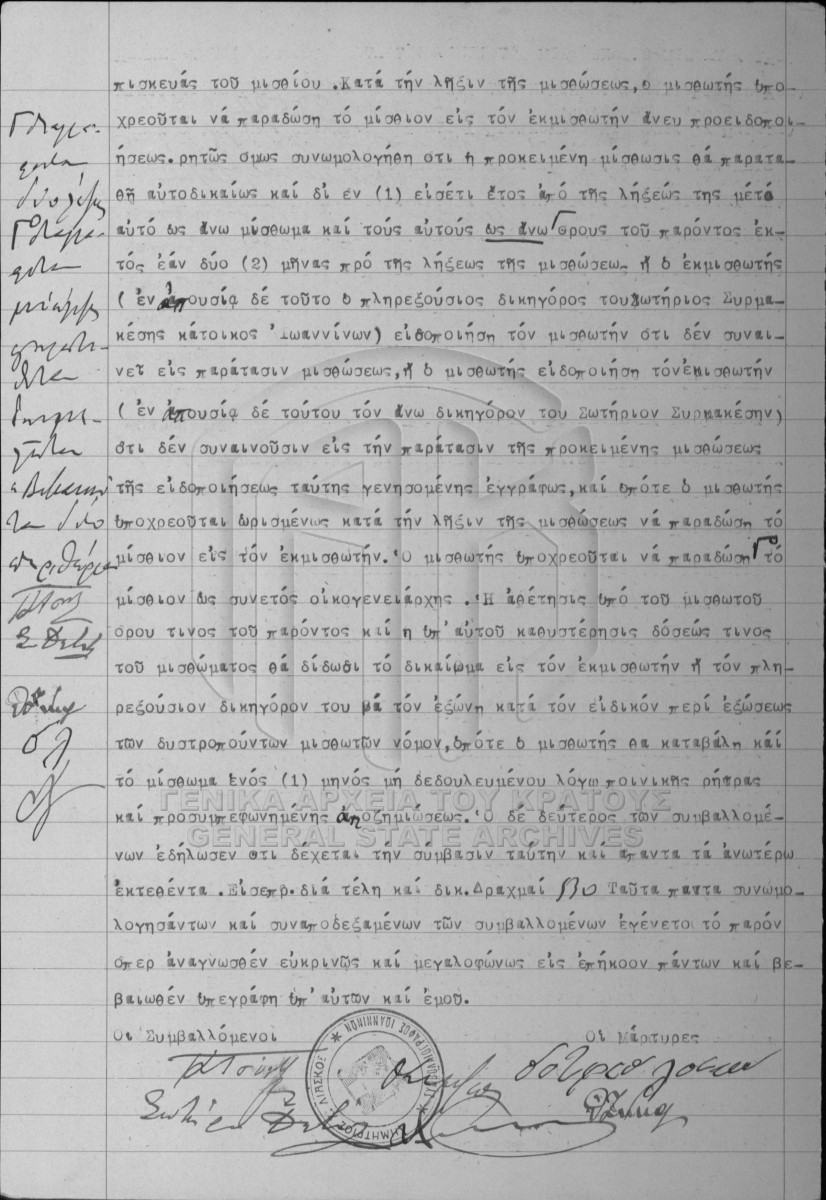 πισκευάς τοῦ μισθίου .Κατά τήν λῆξιν τῆς μισθώσεως, ο μισθωτής ὑπο-
χρεοῦται νά παραδώση τό μίσθιον εἰς τόν ἐκμισθωτήν ἄνευ προειδοποι-
ήσεως.ρητῶς ομως συνωμολογήθη οτι ἡ προκειμένη μίσθωσις θά παρατα-
θῆ αὐτοδικαίως καί δι ἐν (1) εἰσέτι ἔτος ἀπό τῆς λήξεώς της μετά
αὐτό ως ἄνω μίσθωμα καί τους αὐτούς ως ἄνω ορους τοῦ παρόντος ἐκ-
τός ἐάν δύο (2) μῆνας πρό τῆς λήξεως τῆς μισθώσεω- ἤ ὁ ἐκμισθωτής
(ἐν ἀπουσίᾳ δέ τοῦτο ὁ πληρεξούσιος δικηγόρος του Σωτήριος Συρμα-
κέσης κάτοικος Ἰωαννίνων) εἰδοποιήση τόν μισθωτήν ὅτι δέν συναι-
νεῖ εἰς παράτασιν μισθώσεως,ἤ ὁ μισθωτής εἰδοποιήση τόν ἐκμισθωτήν
(ἐν ἀπουσίᾳ δέ τούτου τόν ἄνω δικηγόρον του Σωτήριον Συρμακέσην)
ὅτι δέν συναινοῦσιν εἰς τήν παράτασιν τῆς προκειμένης μισθώσεως
τῆς εἰδοποιήσεως ταύτης γενησομένης ἐγγράφως,καί ὁπότε ὁ μισθωτής
ὑποχρεοῦται ὡρισμένως κατά τήν λῆξιν τῆς μισθώσεως νά παραδώση τό
μίσθιον εἰς τόν ἐκμισθωτήν.Ὁ μισθωτής ὑποχρεοῦται νά παραδώση τό
μίσθιον ὡς συνετός οἰκογενειάρχης .Ἡ ἀθέτησις ὑπό τοῦ μισθωτοῦ
ὅρου τινος τοῦ παρόντος καί η ὑπ'αὐτοῦ καθυστέρησις δόσεώς τινος
τοῦ μισθώματος θά δίδωσι τό δικαίωμα εἰς τόν ἐκμισθωτήν ἤ τόν πλη-
ρεξούσιον δικηγόρον του νά τόν ἐξώνη κατά τόν εἰδικόν περί ἐξώσεως
τῶν δυστροπούντων μισθωτῶν νόμον,ὁπότε ὁ μισθωτής θα καταβάλη καί
τό μίσθωμα ἑνός (1) μηνός μή δεδουλευμένου λόγῳ ποινικῆς ρήτρας
καί προσυμπεφωνημένης ἀποζημιώσεως.Ὁ δέ δεύτερος τῶν συμβαλλομέ-
νων ἐδήλωσεν οτι δέχεται τήν σύμβασιν ταύτην καί ἅπαντα τά ἀνωτέρω
ἐκτεθέντα .Εἰσεπρ.διά τέλη καί δικ.Δραχμαί Ταῦτα παντα συνωμο-
λογησάντων καί συναποδεξαμένων τῶν συμβαλλομένων ἐγένετο τό παρόν
ὅπερ ἀναγνωσθέν εὐκρινῶς καί μεγαλοφώνως εἰς ἐπήκοον πάντων καί βε-
βαιωθέν ὑπεγράφη ὑπ'αὐτῶν καί ἐμοῦ.
Οι Συμβαλλόμενοι Οἱ Μάρτυρες
ΓΕΝΙΚΑ ΑΡΧΕΙΑ ΤΟΥ ΚΡΑΤΟΥΣ
GENERAL STATE ARCHIVES